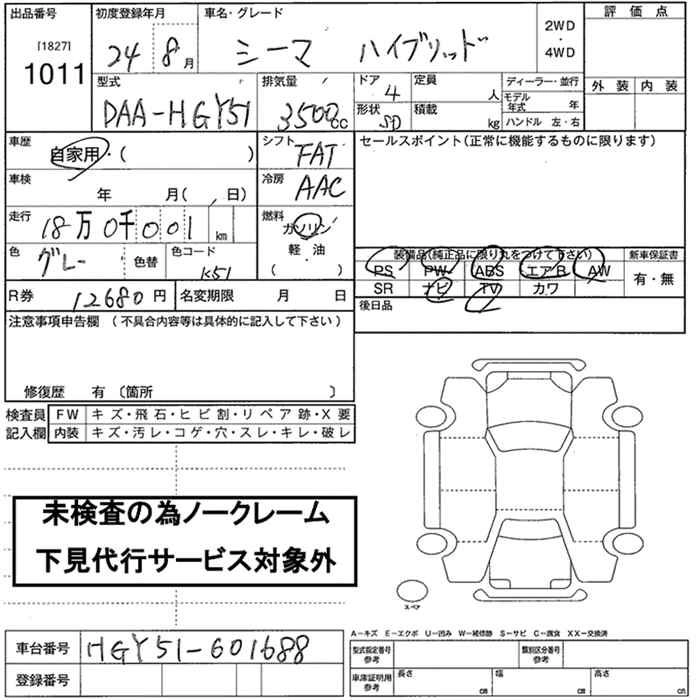 出品番号
［1827］
1011
初度登録年月
24 8月
車名・グレード
シーマ ハイブリッド
2WD
・
4WD
評価点
外装 内装
型式
DAA-HGY51
排気量
3500cc
ドア
4
形状
SD
定員
人
積載
kg
ディーラー・並行
モデル年式 年
ハンドル 左・右
車歴
自家用・（ ）
シフト
FAT
セールスポイント（正常に機能するものに限ります）
車検
年 月（ ．日）
冷房
AAC
走行
18万0千001km
燃料
ガソリン
軽・油
（ ）
色
グレー
色替
色コード
K51
装備品（純正品に限り丸をつけて下さい）
PS PW ABS エアB AW
SR ナビ TV カワ
新車保証書
有・無
R券 12680円
名変期限 月 日
後日品
注意事項申告欄（不具合内容等は具体的に記入して下さい）
修復歴 有〔箇所 〕
検査員記入欄
FW キズ・飛石・ヒビ割・リペア跡・X要
内装 キズ・汚レ・コゲ・穴・スレ・キレ・破レ
未検査の為ノークレーム
下見代行サービス対象外
スペア
A－キズ E－エクボ U－凹み W－補修跡 S－サビ C－腐食 XX－交換済
車台番号 HGY51-601688
登録番号
型式指定番号
参考
類別区分番号
参考
車庫証明用
参考
長さ cm
幅 cm
高さ cm